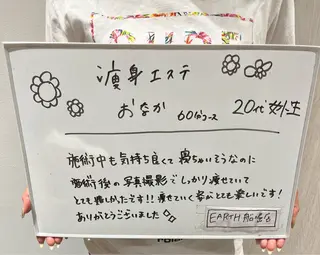 痩身エステ
おなか 60分コース 20代女性
施術中も気持ち良くて寝ちゃいそうなのに
施術後の写真撮影でしっかり痩せていて
とても嬉しかったです!!痩せていく姿がとても楽しいです!
ありがとうございました
EARTH 船堀店